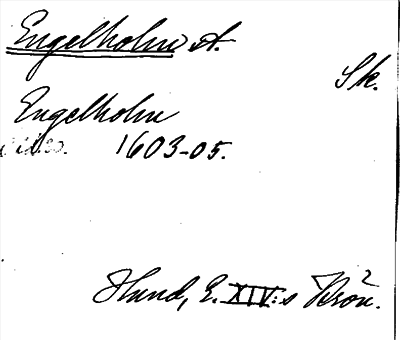 Engelholm st.
Sk.
Engelholm
1603-05.
Hund, E. XIV:s Krön.